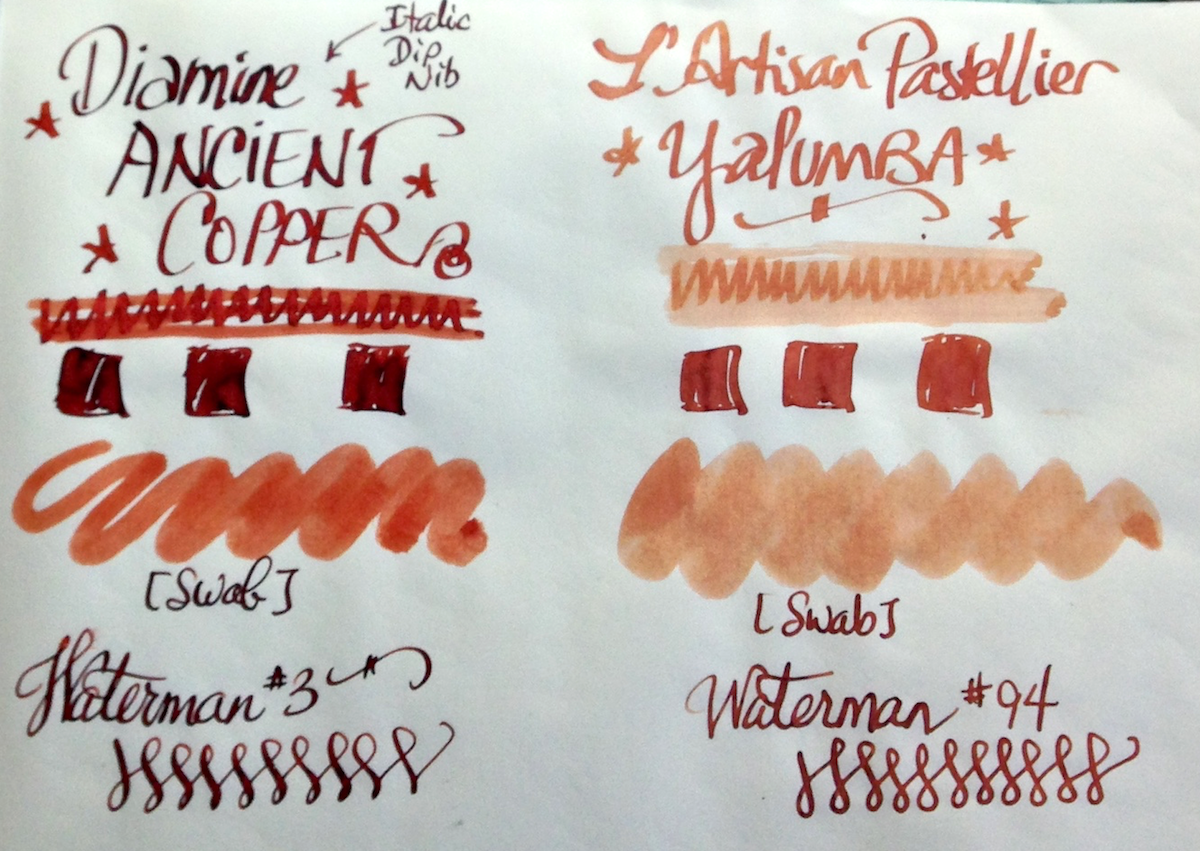 Diamine
Italic
Dip
Nib
ANCiENT
COPPER
[Swab]
Waterman #3
L'Artisan Pastellier
YalumBA
[Swab]
Waterman #94